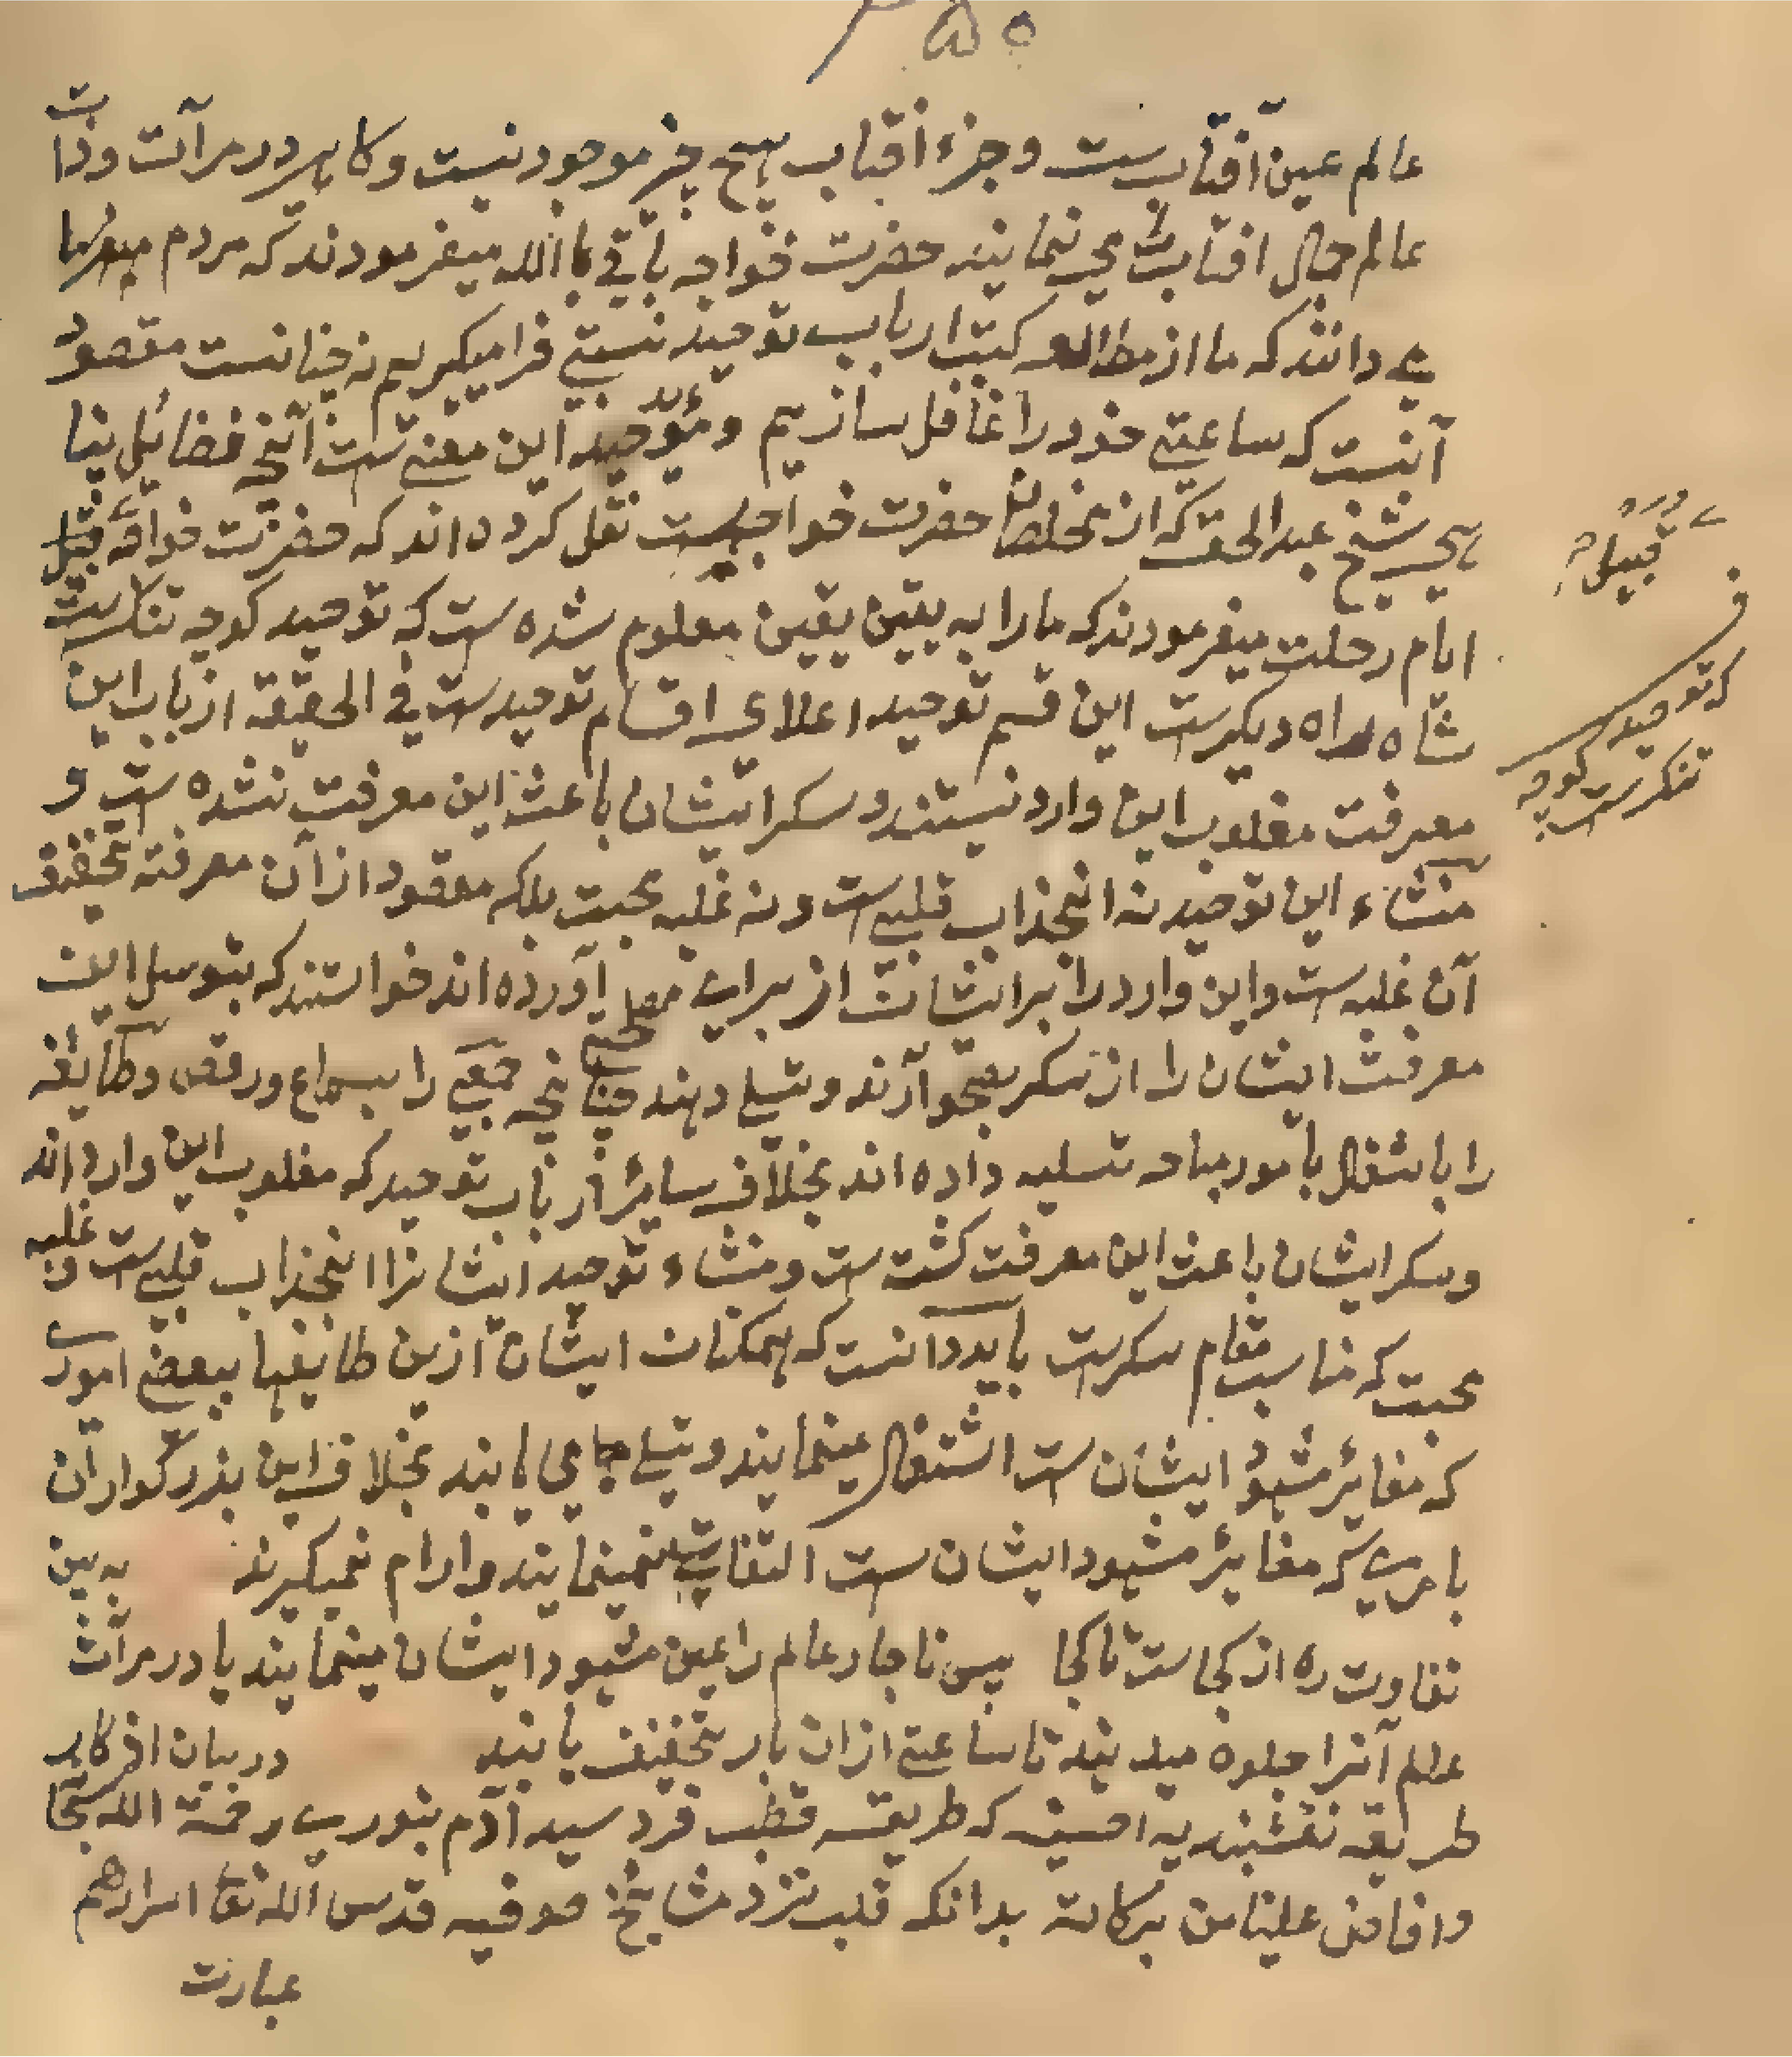 عالم عین آفتاب ست و جزء آفتاب هیچ چیز موجود نیست و کاهی در مرآت ذرات
عالم جمال افتاب می نمایند حضرت خواجه باقی باالله میفرمودند که مردم
می دانند که ما از مطالعه کتب ارباب توحید نسبتی فرا میکیریم نه چنانست مقصود
آنست که ساعتی خود را غافل سازیم و مؤید این معنی ست آنچه فضائل پنا
هی شیخ عبدالحق که از مخلصان حضرت خواجه ست نقل کرده اند که حضرت خواجه قبیل
ایام رحلت میفرمودند که ما را به یقین یقین معلوم شده ست که توحید کوچه تنک ست
شاه راه دیکرست این قسم توحید اعلای اقسام توحیدست فی الحقیقه ارباب این
معرفت مغلوب این وارد نیستند و سکر ایشان باعث این معرفت نشده ست و
منشاء این توحید نه انجذاب قلبی ست و نه غلبه محبت بلکه مقصود از آن معرفة تخفیف
آن غلبه ست و این وارد را بر ایشان از برای مصلحتی آورده اند خواستند که بتوسل این
معرفت ایشان را از سکر بصحو آرند و تسلی دهند چنانچه جمعی را بسماع و رقص و طایفه
را باشتغال بامور مباحه تسلیه داده اند بخلاف سایر ارباب توحید که مغلوب این وارد اند
و سکر ایشان باعث این معرفت کشته ست و منشاء توحید ایشانرا انجذاب قلبی ست و غلبه
محبت که مناسب مقام سکرست باید دانست که همکنان ایشان ازین طائفها ببعض اموری
که مغائر مشهود ایشان ست اشتغال مینمایند و تسلی می یابند بخلاف این بزرکواران
بامری که مغایر مشهود ایشان ست التفات نمینمایند و ارام نمیکیرند به بین
تفاوت ره از کجاست تا کجا پس ناچار عالم را عین مشهود ایشان مینمایند یا در مرآت
عالم آنرا جلوه میدهند تا ساعتی ازان بار تخفیف یابند در بیان اذکار
طریقه نقشبندیه احسنیه که طریقه قطب فرد سید آدم بنوری رحمة الله سبحا
و افاض علینا من برکاته بدانکه قلب نزد مشایخ صوفیه قدس الله تعا اسرارهم
عبارت
قبیل
که توحید کوچه
تنکرست